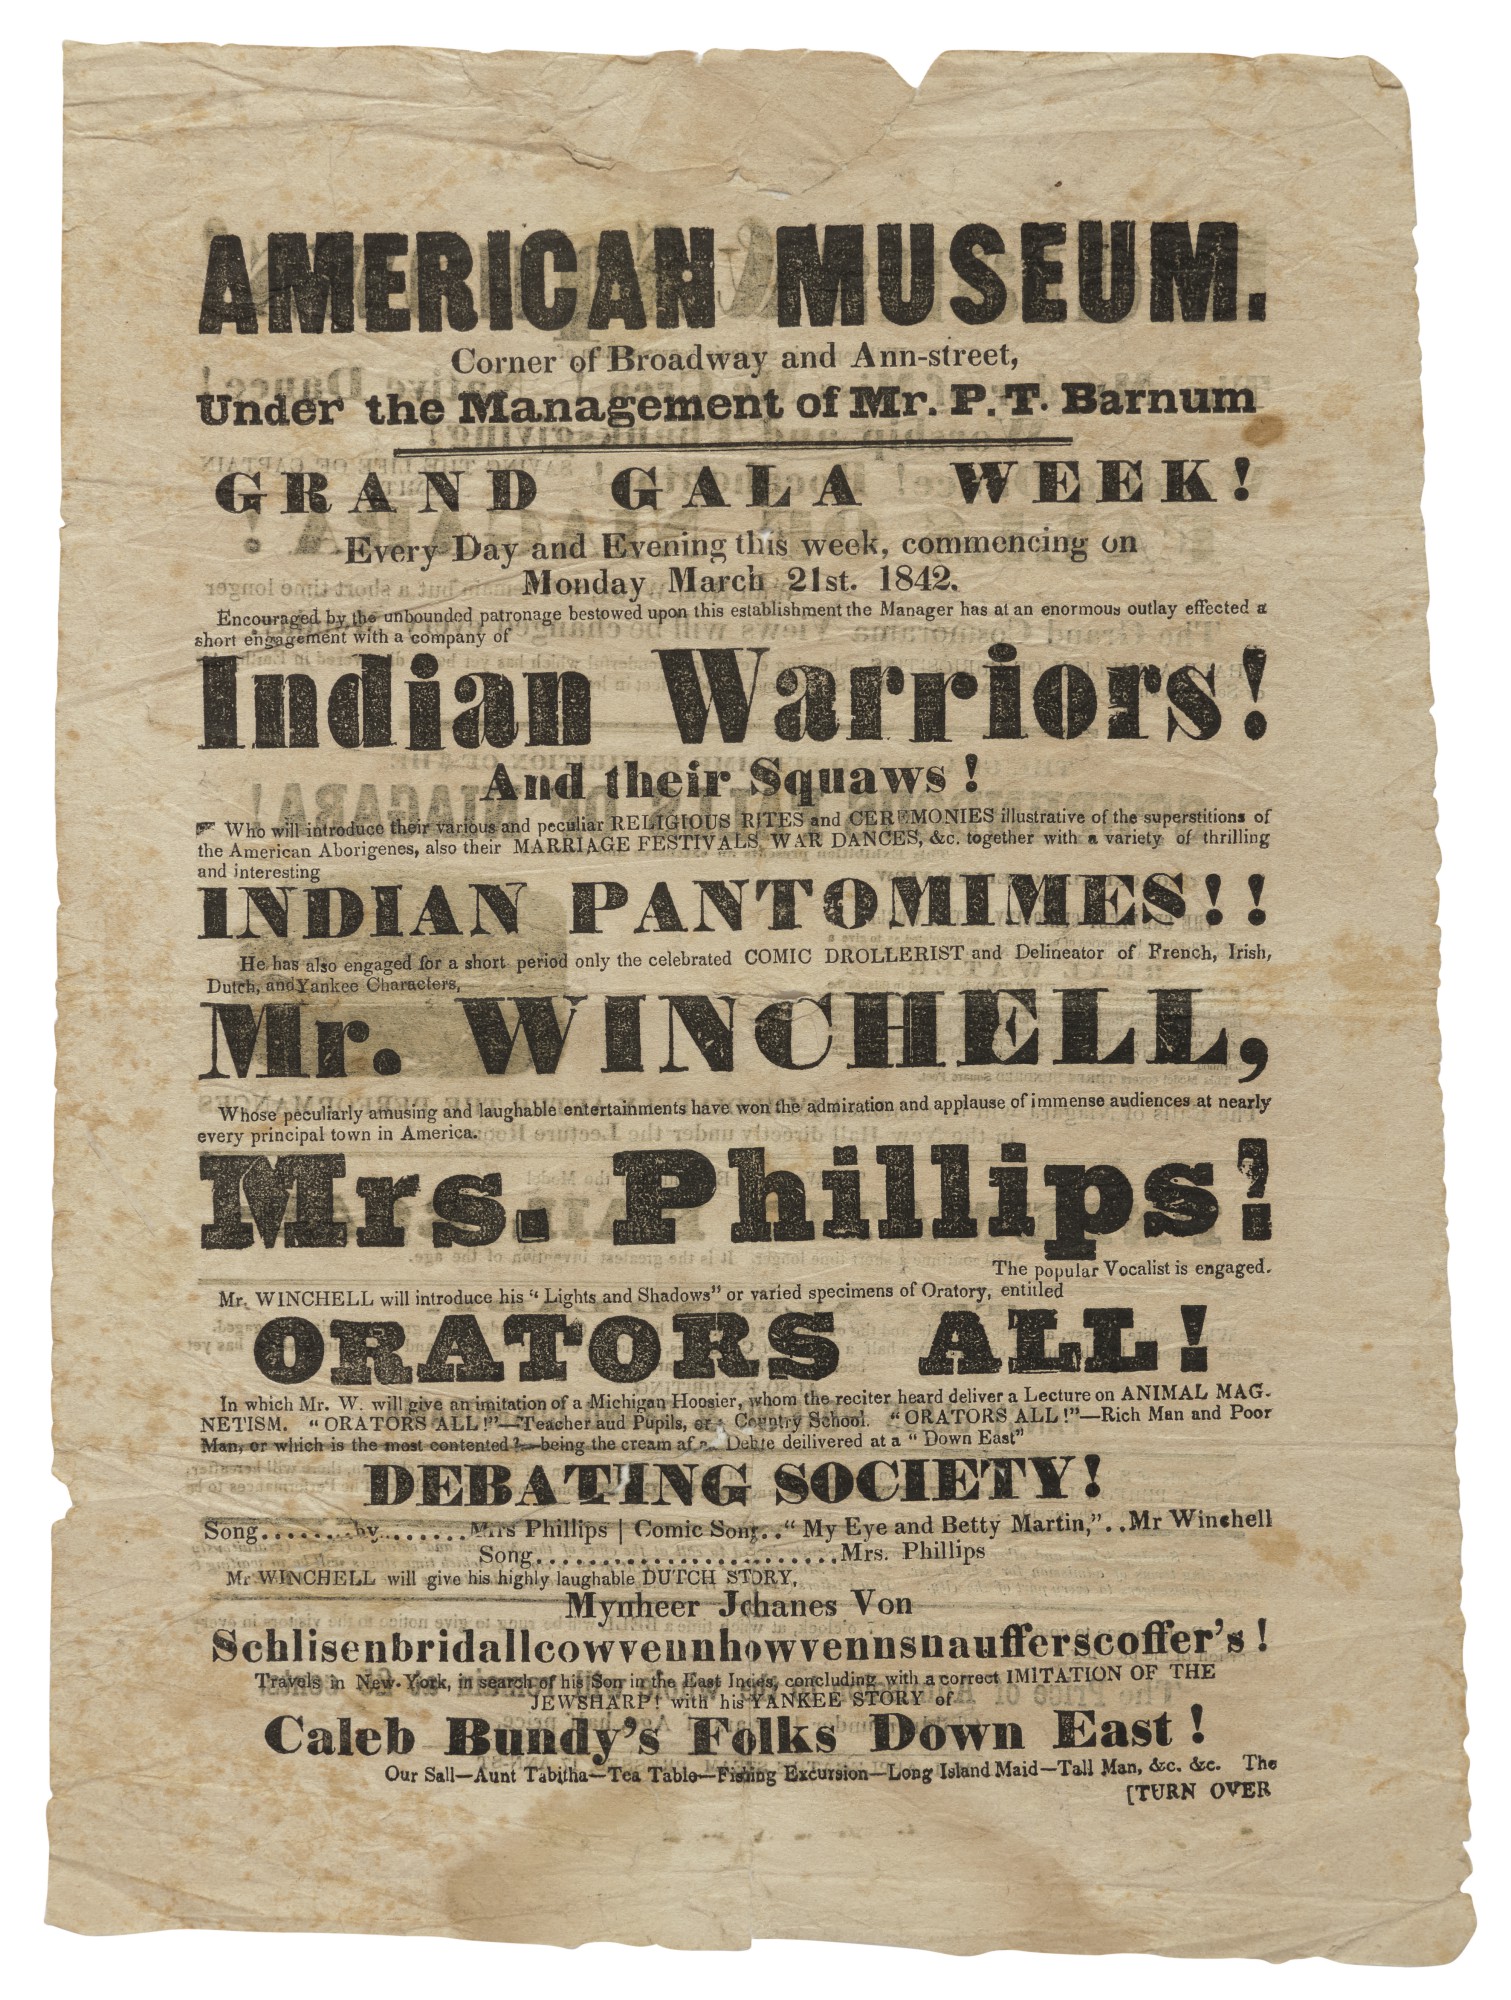 AMERICAN MUSEUM.
Corner of Broadway and Ann-street,
Under the Management of Mr. P. T. Barnum
GRAND GALA WEEK!
Every Day and Evening this week, commencing on
Monday March 21st. 1842.
Encouraged by the unbounded patronage bestowed upon this establishment the Manager has at an enormous outlay effected a
short engagement with a company of
Indian Warriors!
And their Squaws!
☞ Who will introduce their various and peculiar RELIGIOUS RITES and CEREMONIES illustrative of the superstitions of
the American Aborigenes, also their MARRIAGE FESTIVALS, WAR DANCES, &c. together with a variety of thrilling
and interesting
INDIAN PANTOMIMES!!
He has also engaged for a short period only the celebrated COMIC DROLLERIST and Delineator of French, Irish,
Dutch, and Yankee Characters,
Mr. WINCHELL,
Whose peculiarly amusing and laughable entertainments have won the admiration and applause of immense audiences at nearly
every principal town in America.
Mrs. Phillips!
The popular Vocalist is engaged.
Mr. WINCHELL will introduce his "Lights and Shadows" or varied specimens of Oratory, entitled
ORATORS ALL!
In which Mr. W. will give an imitation of a Michigan Hoosier, whom the reciter heard deliver a Lecture on ANIMAL MAG-
NETISM. "ORATORS ALL!"—Teacher aud Pupils, or a Country School. "ORATORS ALL!"—Rich Man and Poor
Man, or which is the most contented?—being the cream af a Debate deilivered at a "Down East"
DEBATING SOCIETY!
Song.......by.......Mrs Phillips | Comic Song.."My Eye and Betty Martin,"..Mr Winchell
Song........................Mrs. Phillips
Mr WINCHELL will give his highly laughable DUTCH STORY,
Mynheer Johanes Von
Schlisenbridallcowvennhowvennsnaufferscoffer's!
Travels in New-York, in search of his Son in the East Indes, concluding with a correct IMITATION OF THE
JEWSHARP! with his YANKEE STORY of
Caleb Bundy's Folks Down East!
Our Sall—Aunt Tabitha—Tea Table—Fishing Excursion—Long Island Maid—Tall Man, &c. &c. The
[TURN OVER